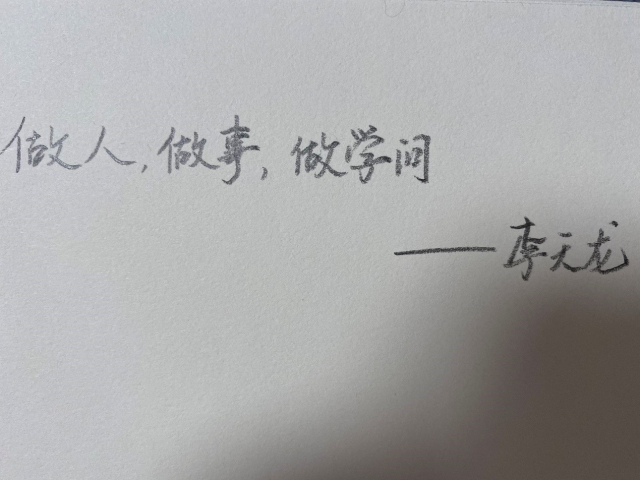 做人,做事,做学问
——李天龙